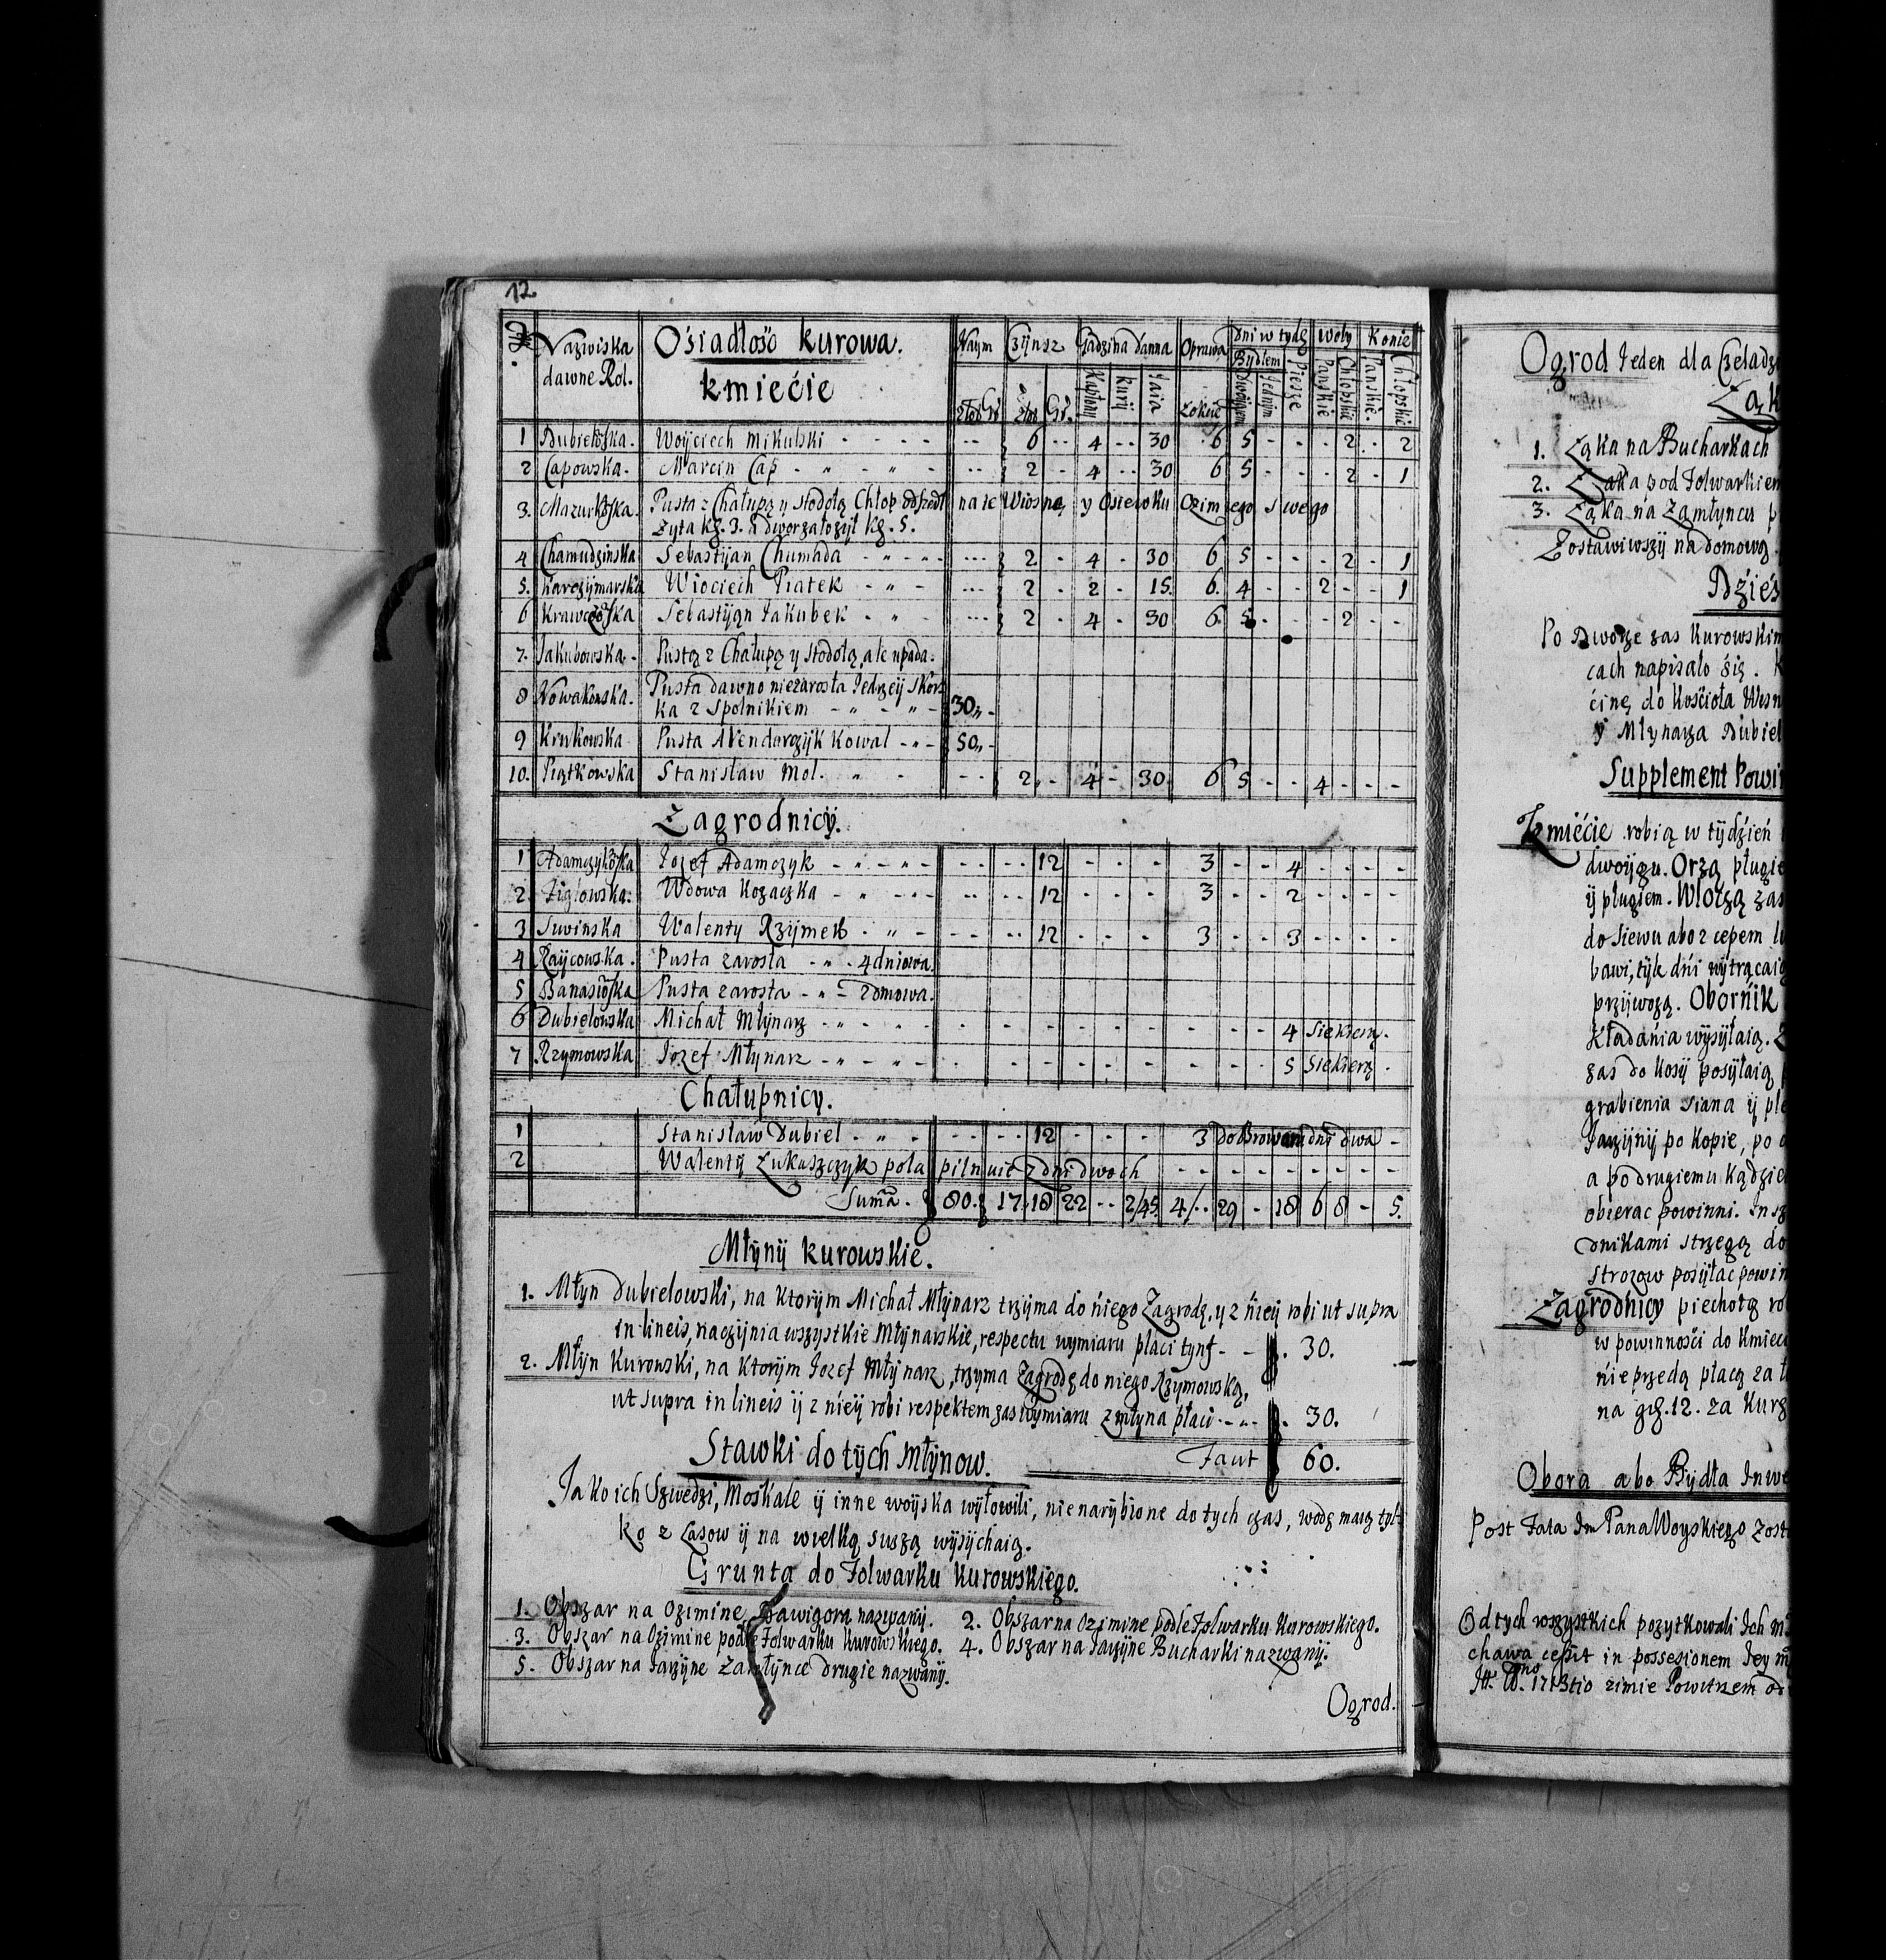 12.
Nazwiska dawne Rol. Osiadłość Kurowa. Kmiećie Naym Czijnsz Gadzina danna Oprawa Dni w tydz Woły Konie
Bydłem Piesze Pańskie Chłopskie Pańskie Chłopskie
złot Gr Złot Gr. Kapłony Kurij Jaia Łokcie Dwoijgiem Jednym
1 Dubielowska. Woijciech Mikulski - - - - 6 -- 4 -- 30 6 5 - - - 2 - 2
2 Capowska. Marcin Cap - " - " - 2 - 4 -- 30 6 5 - - - 2 - 1
3. Mazurkowska. Pusta z Chałupą y stodołą Chłop odszedł na te Wiosnę, y Osiewku Ozimego swego
Zyta kg. 3. a dwor założył kg. 5.
4 Chamudzinska Sebastijan Chumada - " - " - 2 - 4 - 30 6 5 - - - 2 - 1
5. Karczijmarska Wiociech Piatek - " - 2 - 2 - 15. 6. 4 - - 2 - - 1
6 Krawczowska Sebastijan Jakubek - " - 2 - 4 - 30 6 5 - - - 2 - -
7. Jakubowska. Pusta z Chałupą y stodołą, ale upada.
8 Nowakowska. Pusta dawno niezarosła Jedrzeij Skorz
ka z Spolnikiem - " - " - 30 " -
9 Krukowska Pusta Arendarczijk Kowal - " - 50 " -
10. Piątkowska Stanisław Mol. " - 2 - 4 - 30 6 5 - - 4 - - -
Zagrodnicÿ.
1 Adamczykowska Jozef Adamczyk - " - " - 12 - - - 3 - - 4 - - - -
2. Figlowska. Wdowa Kozaczka - " - " - 12 - - - 3 - - 2 - - - -
3 Suwinska Walenty Rzijmek - " - 12 - - - 3 - - 3 - - - -
4 Raijcowska. Pusta zarosła - " - 4 dniowa.
5 Banasiowska Pusta zarosła - " - 2 dniowa.
6 Dubielowska Michał Młijnarz - " - " - - - - - - 4 Siekierą.
7 Rzymowska Jozef Młijnarz - " - " - - - - - - 5 Siekierą.
Chałupnicy.
1 Stanisław Dubiel - " - 12 - - - 3 do Browaru dni dwa -
2 Walentij Łukaszczyk pola pilnuie z dni dwoch - - - - - - - -
Suma. 80. 17. 18 22 -- 2/45. 4/.. 29 - 18 6 8 - 5.
Młijnij Kurowskie.
1. Młijn Dubielowski, na ktorijm Michał Młijnarz trzijma do niego Zagrodę, y z nieij robi ut supra
in lineis, naczijnia wszystkie Młijnarskie, respectu wymiaru płaci tynf - - 30.
2. Młijn Kurowski, na ktorijm Jozef Młijnarz, trzyma Zagrodę do niego Rzymowską,
ut supra in lineis ij z nieij robi respektem zas wymiaru z młyna płaci - " - 30.
Faut 60.
Stawki do tÿch Młÿnow.
Jako ich Szwedzi, Moskale ij inne woijska wyłowili, nie narijbione do tych czas, wodę maią tyl
ko z Lasow ij na wielką suszą wysijchaią.
Grunta do Folwarku Kurowskiego.
1. Obszar na Ozimine Bawigora nazwanij. 2. Obszar na Ozimine podle Folwarku Kurowskiego.
3. Obszar na Ozimine podle Folwarku Kurowskiego. 4. Obszar na Jarzijne Bucharki nazwanij.
5. Obszar na Jarzijne Zamłijnce drugie nazwanij.
Ogrod.
Ogrod Jeden dla Czeladz
Łąk
1. Łąka na Bucharkach
2. Łąka pod Folwarkiem
3. Łąka na Zamłyncu
Zostawiwszij na domową
Dzies
Po Dworze zas Kurowskim
cach napisało się.
cinę do Kościoła Wisn
y Młynarza Dubiel
Supplement Powin
Kmiećie robią w tijdzień
dwoijgu. Orzą pługie
ij pługiem. Włoczą zas
do Siewu abo z cepem
bawi, tijk dni wijtrącaią
przijwozą. Obornik
Kładania wysijłaią.
zas do Kosij posijłaią
grabienia Siana ij ple
Jarzijnij po Kopie, po
a po drugiemu Kądzie
obierac powinni.
dnikami strzegą do
strozow posijłac powin
Zagrodnicy piechotą ro
w powinnosći do Kmieć
nie przedą płacą za
na grz. 12. za Kurz
Obora abo Bijdła Inwe
Post Fata Im Pana Woyskiego zost
Od tych wszystkich pozytkowali Ich
chawa cessit in possesionem Jey
1713tio zimie Powitrzem